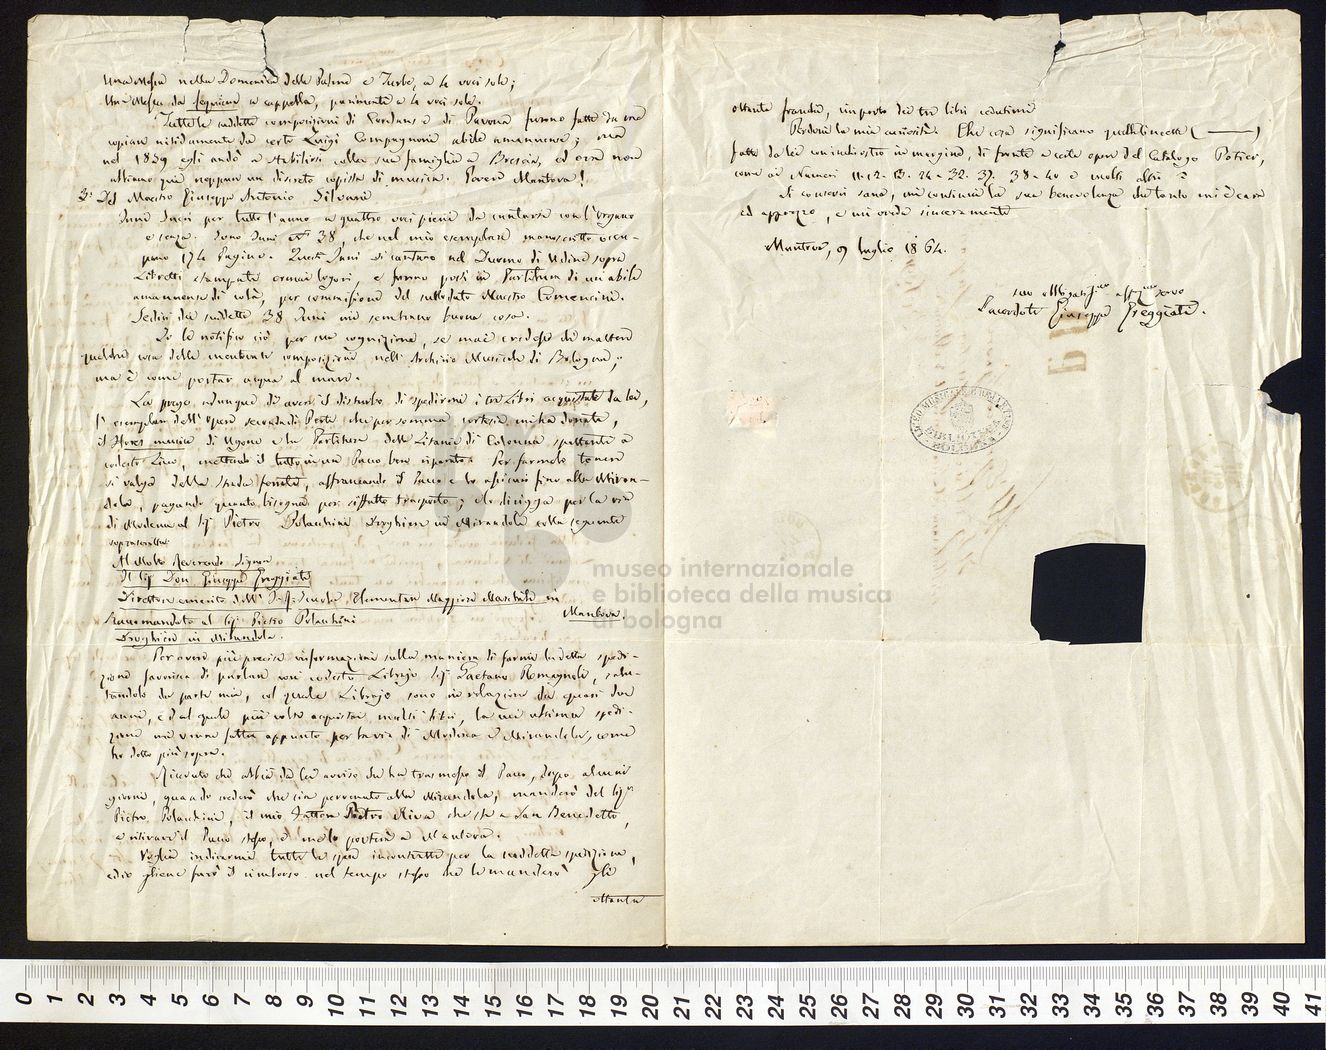 Una Messa nella Domenica delle Palme e Turbe, a 4 voci sole;
Una Messa da Requiem a cappella, parimente a 4 voci sole.
Tutte le suddette composizioni di e di furono fatte da me
copiare nitidamente da certo Luigi Compagnoni abile amanuense; ma
nel 1839 egli andò a stabilirsi colla sua famiglia a Brescia, ed ora non
abbiamo qui neppure un discreto copista di musica. Povera Mantova!
3.° Del Maestro Giuseppe Antonio Silvani
Inni Sacri per tutto l'anno a quattro voci piene da cantarsi con l'Organo
e senza. Sono Inni N.° 38, che nel mio esemplare manoscritto occu-
pano 174 Pagine. Questi Inni si cantano nel Duomo di Udine sopra
Libretti stampati ormai logori, e furono posti in Partitura da un abile
amanuense di colà, per commissione del sullodato Maestro Comencini.
dei suddetti 38 Inni mi sembrano buona cosa.
Io le notifico ciò per sua cognizione, se mai credesse di mettere
qualche cosa delle mentovate composizioni nell'Archivio Musicale di Bologna;
ma è come portar acqua al mare.
La prego adunque di aver il disturbo di spedirmi i tre Libri acquistati da lei,
l'esemplare dell'Opera seconda di Porta che per somma cortesia mi ha donato,
il Flores musicae di Ugone e la Partitura delle Litanie di Colonna spettante a
codesto Liceo, mettendo il tutto in un Pacco ben riparato. Per farmelo tenere
si valga della strada ferrata, affrancando il Pacco e lo assicuri fino alla Miran-
dola, pagando quanto bisogna per siffatto trasporto; e lo dirigga per la via
di Modena al Sig.r Pietro Polachini Droghiere in Mirandola colla seguente
soprascritta:
Al Molto Reverendo Signore
Il Sig.r Don Giuseppe Greggiati
Direttore emerito dell'I. R. Scuola Elementare Maggiore Maschile in
Raccomandato al Sig.r Pietro Polachini Mantova.
Droghiere in Mirandola.
Per avere più precise informazioni sulla maniera di farmi la detta spedi-
zione favorisca di parlare con codesto Librajo Sig.r Gaetano Romagnoli, salu-
tandolo da parte mia, col quale Librajo sono in relazione da quasi due
anni, e dal quale più volte acquistai molti libri, la cui ultima spedi-
zione mi venne fatta appunto per la via di Modena e Mirandola, come
ho detto più sopra.
Ricevuto che abbia da Lei avviso che ha trasmesso il Pacco, dopo alcuni
giorni, quando crederò che sia pervenuto alla Mirandola, manderò dal Sig.r
Pietro Polachini, il mio Fattore Pietro Riva che sta a San Benedetto,
a ritirare il Pacco stesso, e me lo porterà a Mantova.
Voglia indicarmi tutte le spese incontrate per la suddetta spedizione,
ed io gliene farò il rimborso nel tempo stesso che le manderò gli
ottanta
ottanta franchi, importo dei tre libri cedutimi
Perdoni la mia curiosità. Che cosa significano quelle lineette (———)
fatte da lei con inchiostro in margine, di fronte a certe opere del Catalogo Potier,
come ai Numeri 11. 12. 13. 24. 32. 37. 38. 40 e molti altri?
Si conservi sano, mi continui la sua benevolenza che tanto mi è cara
ed apprezzo, e mi creda sinceramente
Mantova, 9 luglio 1864.
suo obbligatiss.mo aff.mo servo
Sacerdote Giuseppe Greggiati.
LICEO MUSICALE
BIBLIOTECA
BOLOGNA
museo internazionale
e biblioteca della musica
di bologna
0 1 2 3 4 5 6 7 8 9 10 11 12 13 14 15 16 17 18 19 20 21 22 23 24 25 26 27 28 29 30 31 32 33 34 35 36 37 38 39 40 41